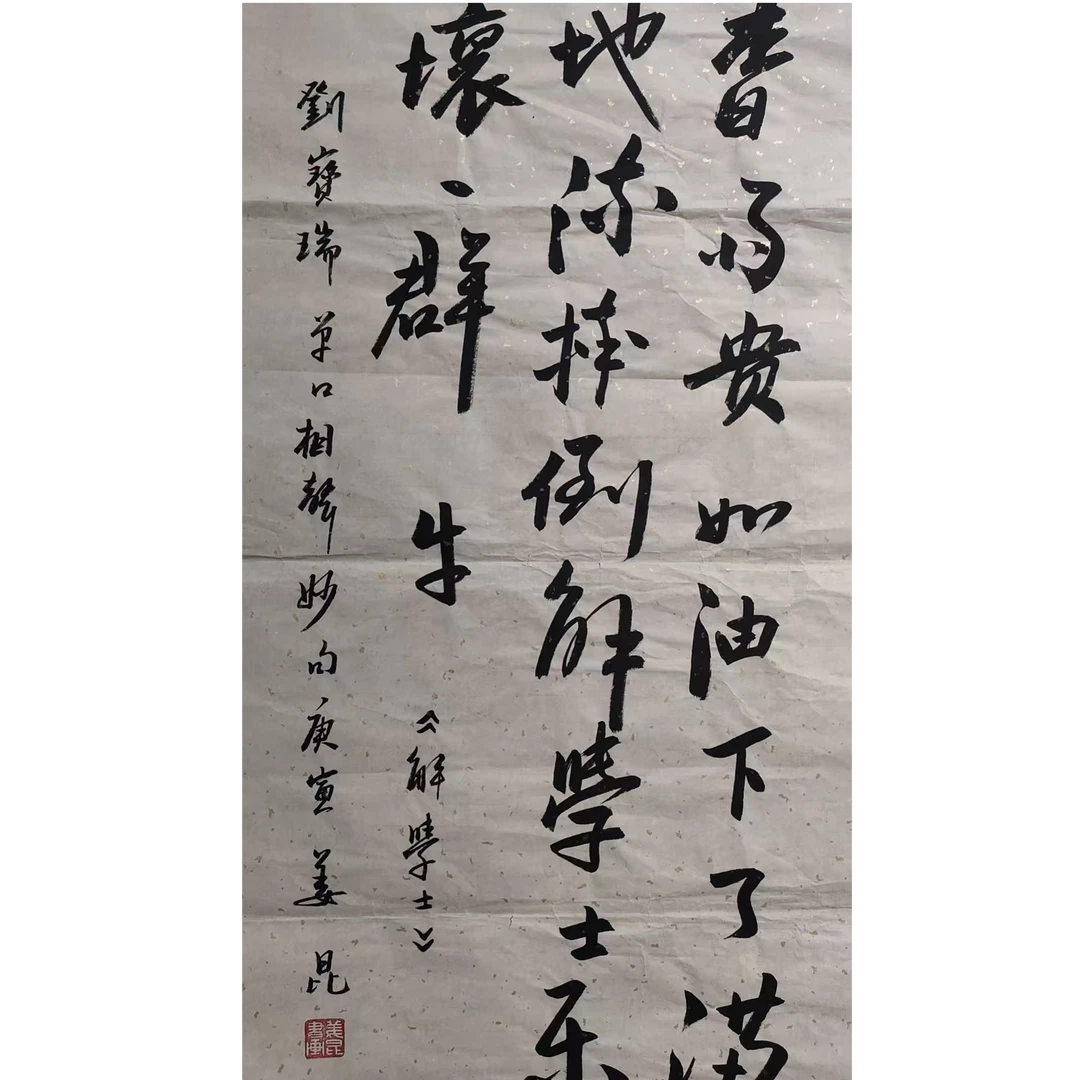 春雨贵如油下了满
地流摔倒解學士乐
壞一群牛
《解學士》
劉寶瑞单口相聲妙句庚寅姜昆
姜昆書画